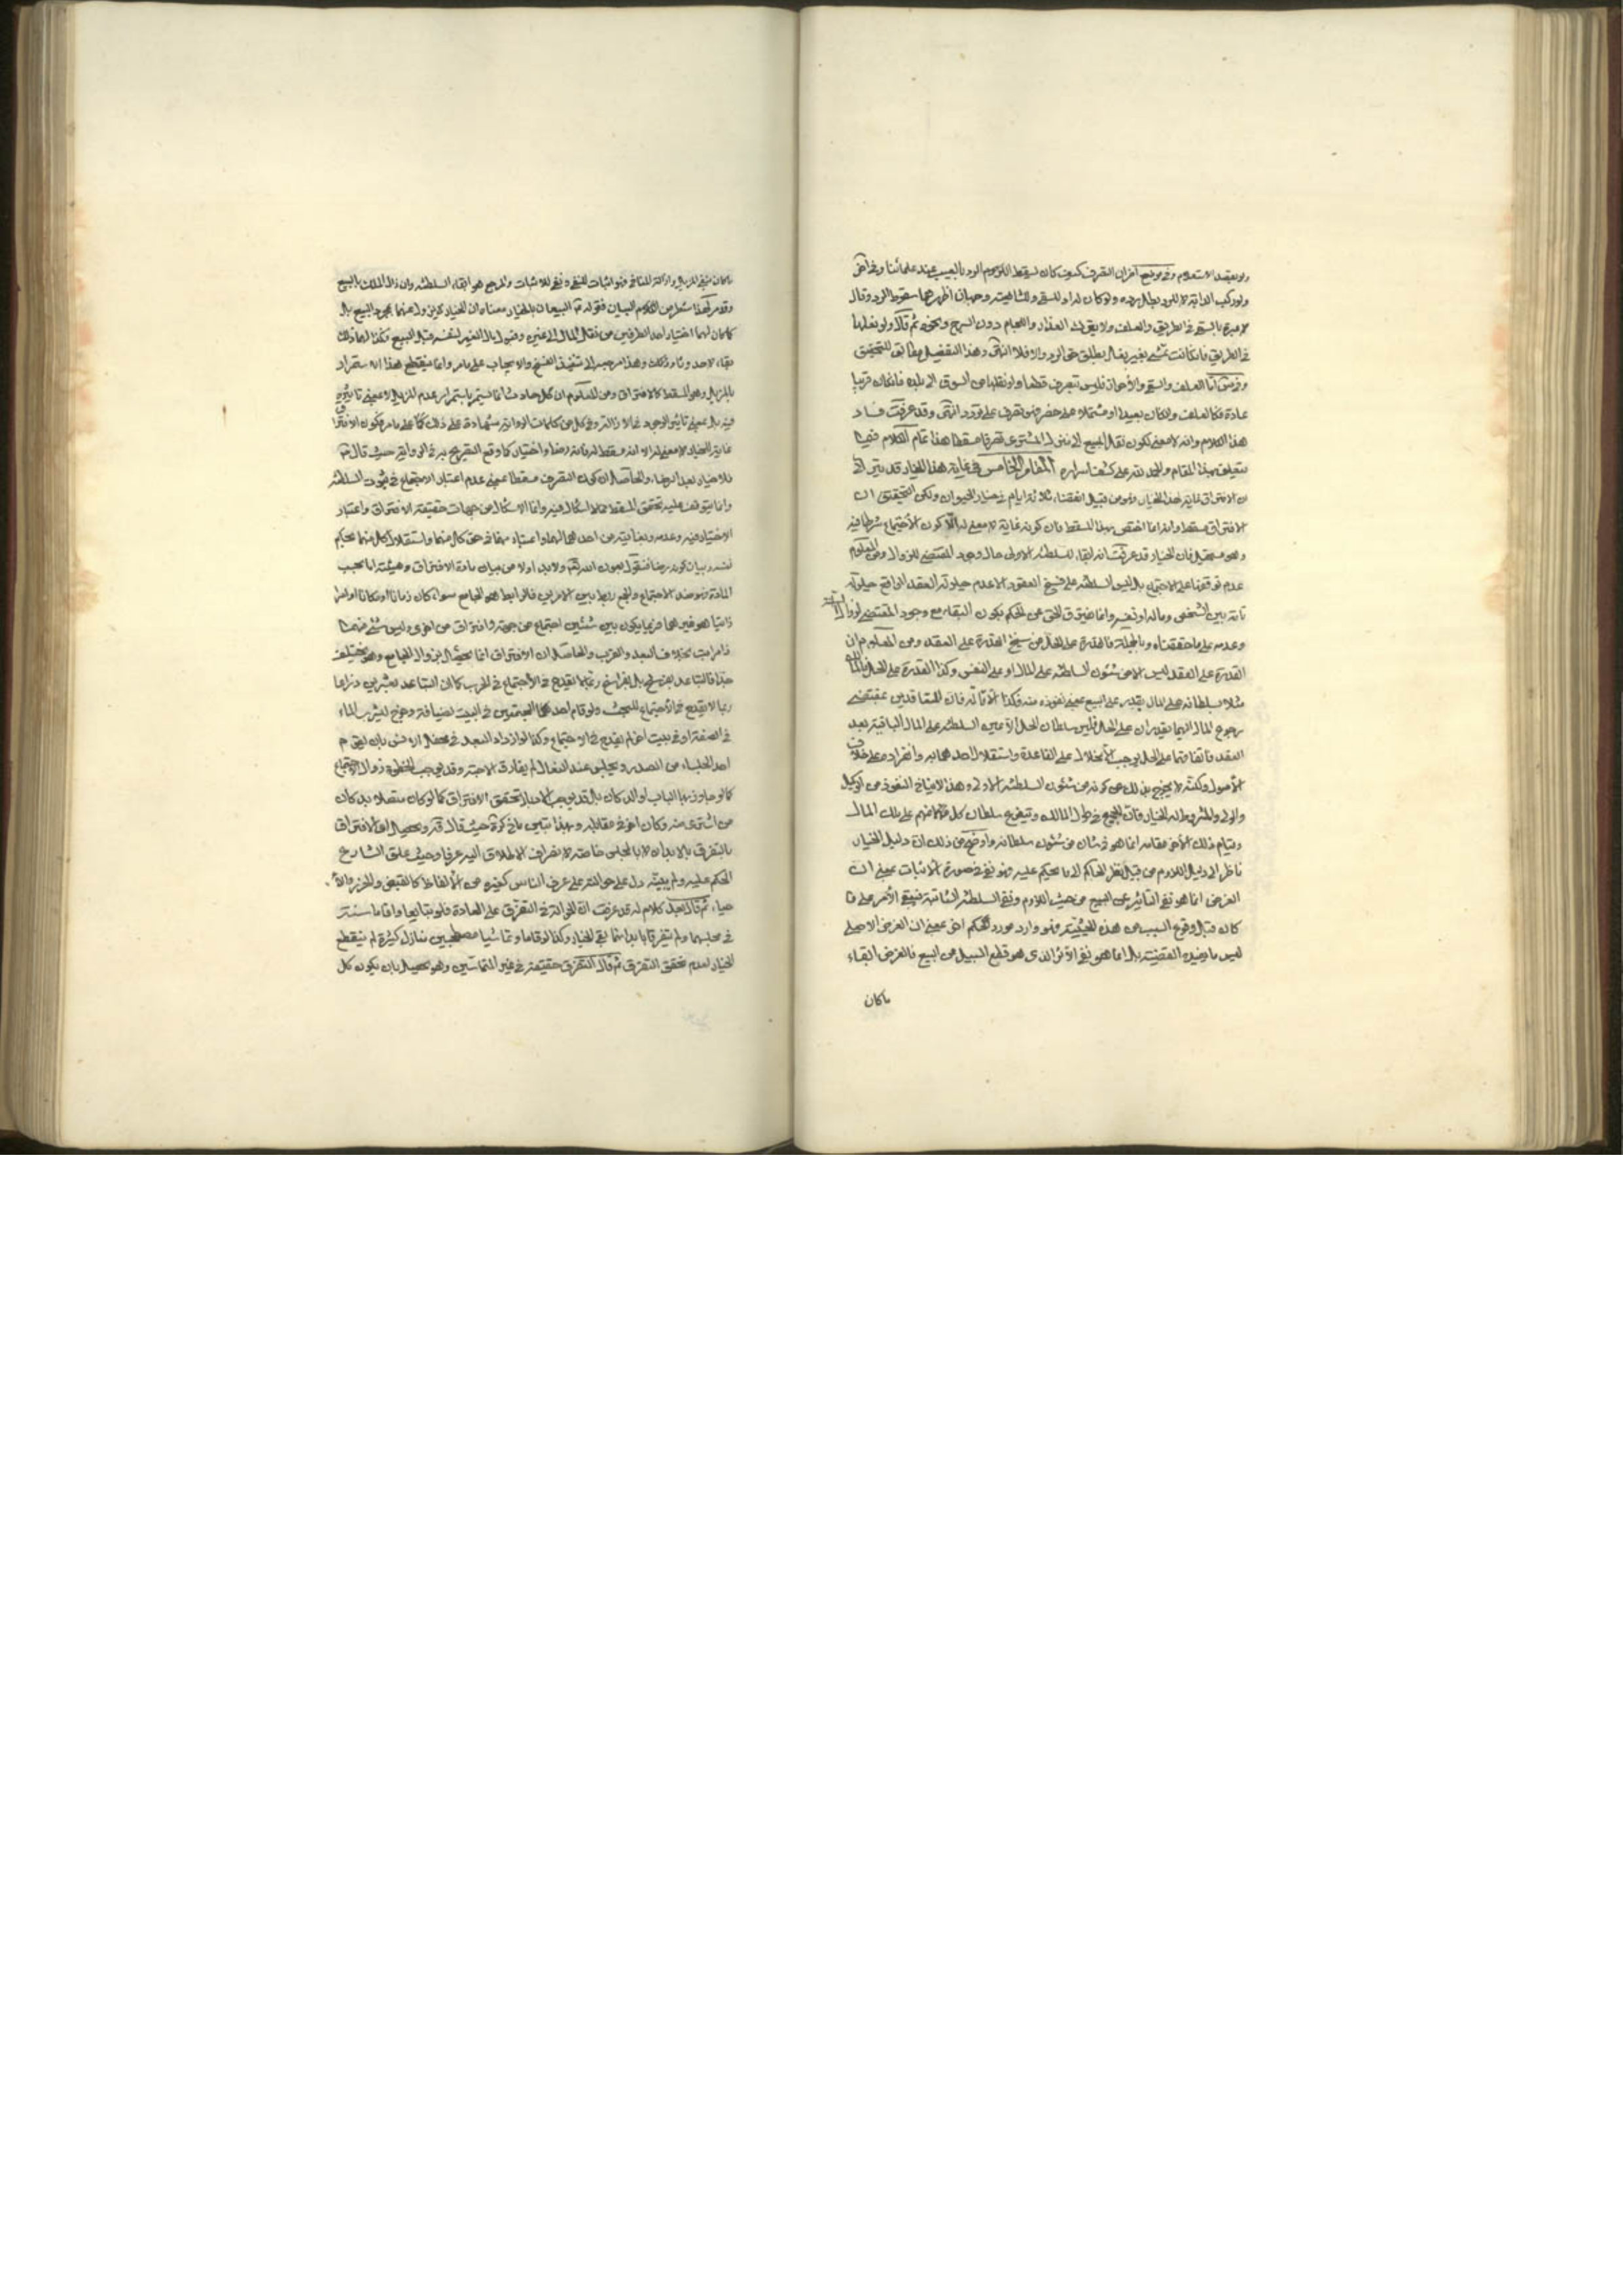 ولو بقصد الاستعلام وفي موضع آخر ان التصرف كيف كان يسقط الرد بالعيب عند علمائنا وفي آخر
ولو ركب الدابة للرد بطل رده ولو كان لداو للسقي وللشافعية وجهان اظهرهما سقوط الرد وقال
لا عبرة بالسقي في الطريق والعلف ولا يترك العذار واللجام دون السرج ونحوه ثم قال ولو نعلها
في الطريق فان كانت تمشي بغير نعال بطل حق الرد والا فلا انتهى وهذا التفصيل مطابق للتحقيق
العلف والسقي فليس بتصرف قطعا ولو نقلها من السوق الى بيته فان كان قريبا
عادة فكالعلف وان كان بعيدا او مشتملا على خطر فهو تصرف على تردد انتهى وقد عرفت فساد
هذا الكلام وانه لا معنى لكون نقل المبيع الى المشتري تصرفا مسقطا هذا تمام الكلام فيما
يتعلق بهذا المقام والحمد لله على كشف اسراره المقام الخامس في غاية هذا الخيار قد
ان الافتراق غاية لهذا الخيار وهو من قبيل انقضاء ثلاثة ايام في خيار الحيوان ولكن التحقيق ان
الافتراق مسقط وانما اختص بهذا المسقط فان كونه غاية لا معنى له الا كون الاجتماع شرطا فيه
وهو مستحيل فان الخيار قد عرفت انه ابقاء للسلطنة الاولى حال وجود المقتضي للزوال ومن المعلوم
عدم توقفها على الاجتماع بل ليس السلطنة على فسخ العقود الا عدم حيلولة العقد الواقع حيلولة
تامة بين الشخص وماله او نفسه وانما ضيق الخناق من الحكم بكون البقاء مع وجود المقتضي لزوال
وعدمه على ما حققناه وبالجملة فالقدرة على الحل من سنخ القدرة على العقد ومن المعلوم ان
القدرة على العقد ليس الا من شئون السلطنة على المال او على النفس وكذا القدرة على الحل فالمالك
مثلا بسلطانه على المال يقدر على البيع بمعنى نفوذه منه فكذا الاقالة فان المتعاقدين بمقتضى
رجوع المال اليهما يقدران على الحل فليس سلطان الحل الا عين السلطنة على المال الباقية بعد
العقد فاتفاقهما على الحل يوجب الانحلال على القاعدة واستقلال احدهما به وانفراده على خلاف
الاصول ولكنه لا يخرج بذلك عن كونه من شئون السلطنة الاولى وهذا لا ينافي النفوذ من الوكيل
والولي والمشروط له الخيار فان الجميع في طول المالك ويتفرع سلطان كل منهم على ملك المال
وقيام ذلك الاخر مقامه انما هو في شان من شئون سلطانه واوضح من ذلك ان دليل الخيار
ناظر الى دليل اللزوم من قبيل نظر الحاكم الى ما يحكم عليه فهو نفي في صورة الاثبات بمعنى ان
الغرض انما هو نفي التاثير عن البيع من حيث اللزوم ونفي السلطنة الثانية فيبقى الامر على ما
كان قبل وقوع السبب من هذه الحيثية فهو وارد مورد حكم اخر بمعنى ان الغرض الاصلي
ليس ما يفيده القضية بل انما هو نفي الاثر الذي هو قطع السبيل من البيع فالغرض ابقاء
ماكان
ماكان بنفي المزيل وازالة المنافي فهو اثبات للنفي ونفي للاثبات والمرجع هو ابقاء السلطنة وان زال الملك بالبيع
وقد مر هذا شطر من الكلام البيان فقوله البيعان بالخيار معناه ان الخيار لم يزل عنهما بمجرد البيع بل
كما كان لهما اختيار احد الطرفين من نقل المال الى الغير وقبول مال الغير لنفسه قبل البيع فكذا لهما ذلك
بقاء لاحدوثا وذلك وهذا مرجعه الى تنفيذ الفسخ والايجاب على ما مر وانما ينقطع هذا الاستمرار
بالمزيل وهو المسقط كالافتراق ومن المعلوم ان كل حادث انما يستمر باستمرار عدم المزيل لا بمعنى تاثيره
فيه بل بمعنى تاثير الوجود في الازالة وفي كل من كلمات الرواية شهادة على ذلك كما على ما مر فكون الافتراق
غاية الخيار لا معنى له الا انه مسقط له لانه رضا واختيار كما وقع التصريح به في الرواية حيث قال
فلا خيار بعد الرضا والحاصل ان كون التصرف مسقطا بمعنى عدم اعتبار الاجتماع في ثبوت السلطنة
وانما يتوقف عليه تحقق المسقط مما لا اشكال فيه وانما الاشكال من جهات حقيقة الافتراق واعتبار
الاختيار فيه وعدمه وبغائيته من احدهما لهما واعتباره بهما في حق كل منهما واستقلال كل منهما بحكم
نفسه وبيان كونه رضا فنقول بعون الله تعالى ولا بد اولا من بيان مادة الافتراق وهيئته اما بحسب
المادة فهو ضد الاجتماع والجمع ربط بين الامرين فالرابط هو الجامع سواء كان زمانا او مكانا او امرا
ذاتيا هو غيرهما فربما يكون بين شيئين اجتماع من جهة وافتراق من اخرى وليس شيء منهما
ذا مراتب بخلاف البعد والقرب والحاصل ان الافتراق انما يحصل بزوال الجامع وهو يختلف
جدا فالتباعد بفرسخ بل بفراسخ ربما لا يقدح في الاجتماع في الحرب كما ان التباعد بعشرين ذراعا
ربما لا يقدح في الاجتماع للبحث ولو قام احد المجتمعين في البيت لضيافة وخرج لشرب الماء
في الصفة او في بيت اخر لم يقدح في الاجتماع وكذا لو ازداد البعد في محفل الانس بان يقوم
احد الجلساء من الصدر ويجلس عند النعال لم يفارق الاحبة وقد يوجب الخطوة زوال الاجتماع
كما لو جاوز بها الباب او الدكان بل قد يوجب تحقق الافتراق كما لو كان متصلا بدكان
من اشترى منه وكان اخر في مقابله وبهذا تبين ما في كره حيث قال قده ويحصل الافتراق
بالتفرق بالابدان لا بالمجلس خاصة لانصراف الاطلاق اليه عرفا وحيث علق الشارع
الحكم عليه ولم يبينه دل على حوالته على عرف الناس كغيره من الالفاظ كالقبض والحرز والاحياء
ثم قال بعد كلام له قد عرفت ان الحوالة في التفرق على العادة فلو تبايعا واقاما سنة
في مجلسهما ولم يتفرقا بابدانهما بقي الخيار وكذا لو قاما وتماشيا مصطحبين منازل كثيرة لم ينقطع
الخيار لعدم تحقق التفرق ثم قال التفرق حقيقة في غير المتماسين وهو يحصل بان يكون كل